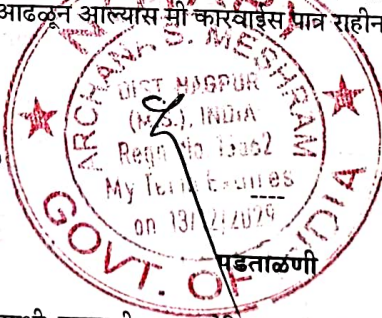 आढळून आल्यास मी कारवाईस पात्र राहीन
ARCHANA S. MESHRAM
DIST NAGPUR
(M.S.), INDIA
Regn No
My Term Expires
on
GOVT. OF INDIA
पडताळणी